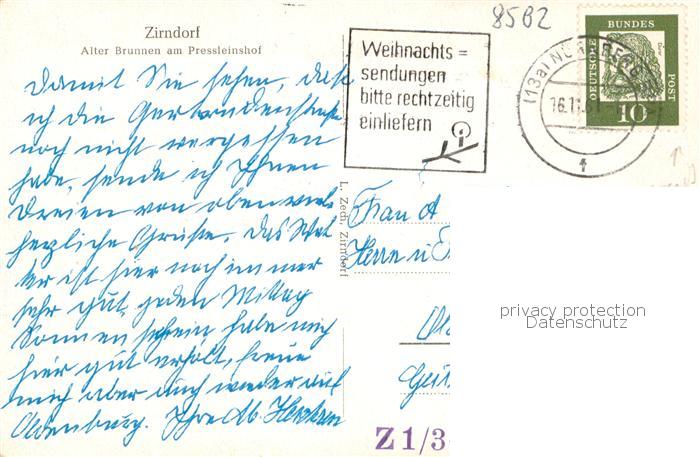 Zirndorf
Alter Brunnen am Pressleinshof
85B2
Weihnachts=
sendungen
bitte rechtzeitig
einliefern
(13a) NÜRNBERG
16.11.
DEUTSCHE BUNDES POST
10
Damit Sie sehen, dass
ich die
noch nicht vergessen
habe, sende ich Ihnen
Dreien von oben viele
herzliche Grüße. Das Wet
ter ist hier noch immer
sehr gut, jeden Mittag
Sonnenschein habe mich
hier gut erholt, freue
mich aber auch wieder auf
Oldenburg. Ihre
L. Zech, Zirndorf
Frau A
Herrn u
Z 1/3
privacy protection
Datenschutz